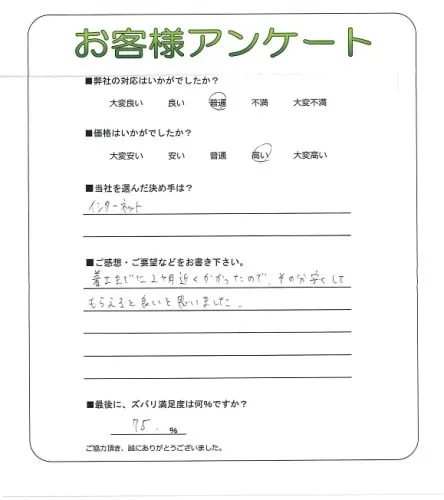 お客様アンケート
■弊社の対応はいかがでしたか？
大変良い 良い 普通 不満 大変不満
■価格はいかがでしたか？
大変安い 安い 普通 高い 大変高い
■当社を選んだ決め手は？
インターネット
■ご感想・ご要望などをお書き下さい。
着工までに2ヶ月近くかかったので、その分安くして
もらえると良いと思いました。
■最後に、ズバリ満足度は何％ですか？
75. ％
ご協力頂き、誠にありがとうございました。